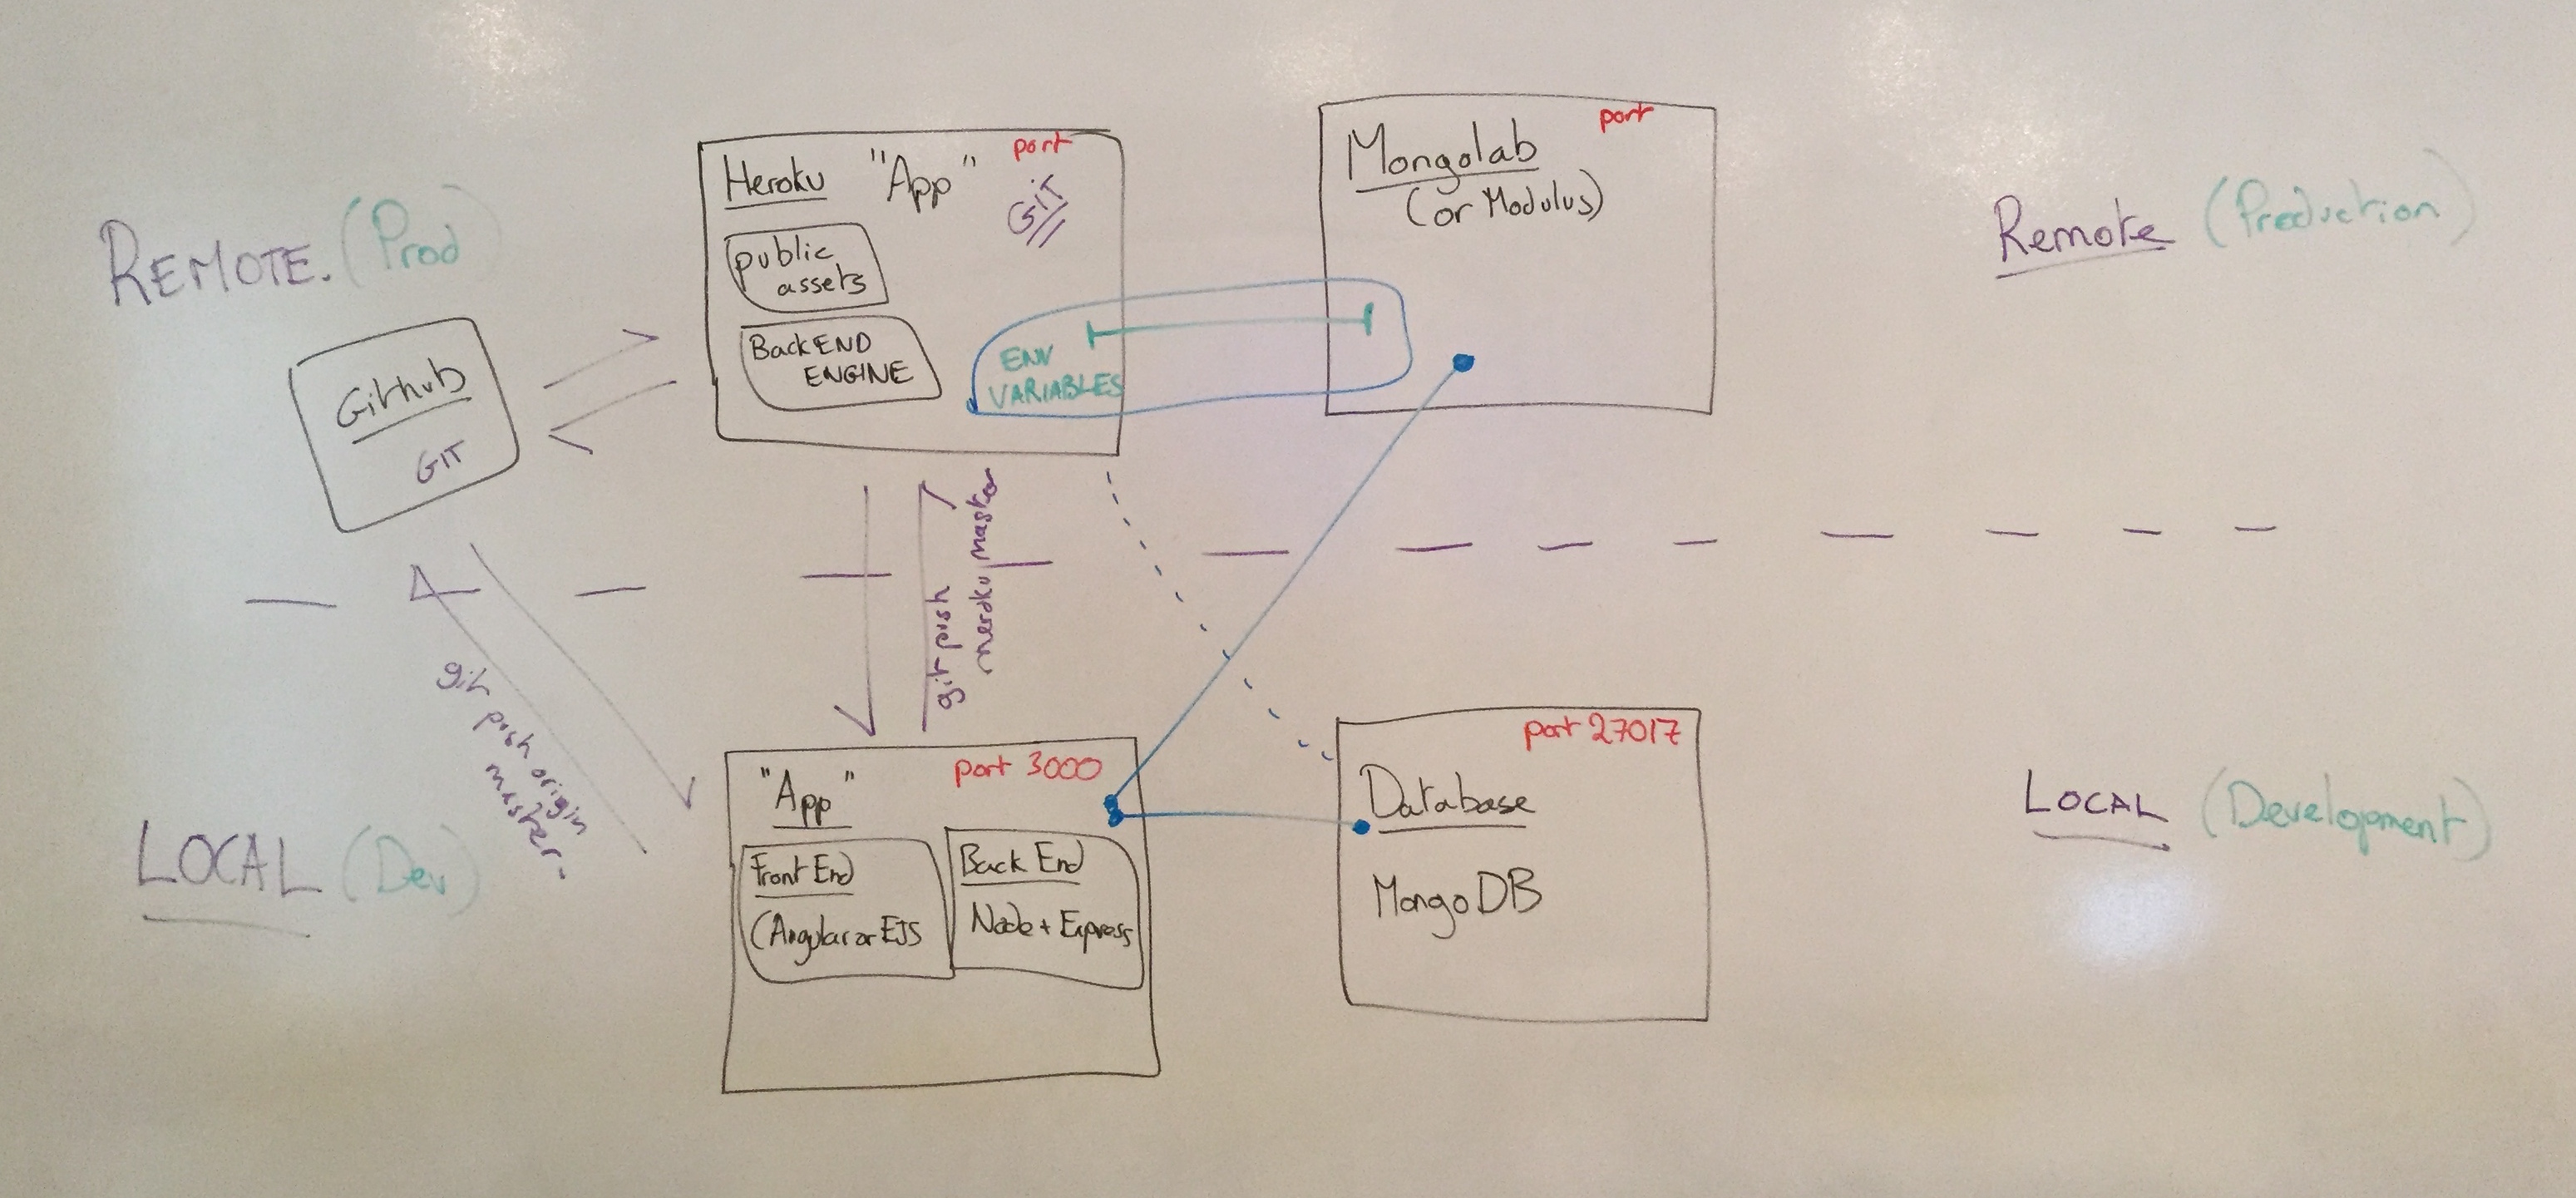 REMOTE. (Prod)
Github
GIT
Heroku "App"
port
GIT
public
assets
BackEND
ENGINE
ENV
VARIABLES
Mongolab
(or Modulus)
port
Remote (Production)
git push
heroku master
git push origin
master.
LOCAL (Dev)
"App"
port 3000
Front End
(Angular or EJS
Back End
Node + Express
port 27017
Database
MongoDB
LOCAL (Development)